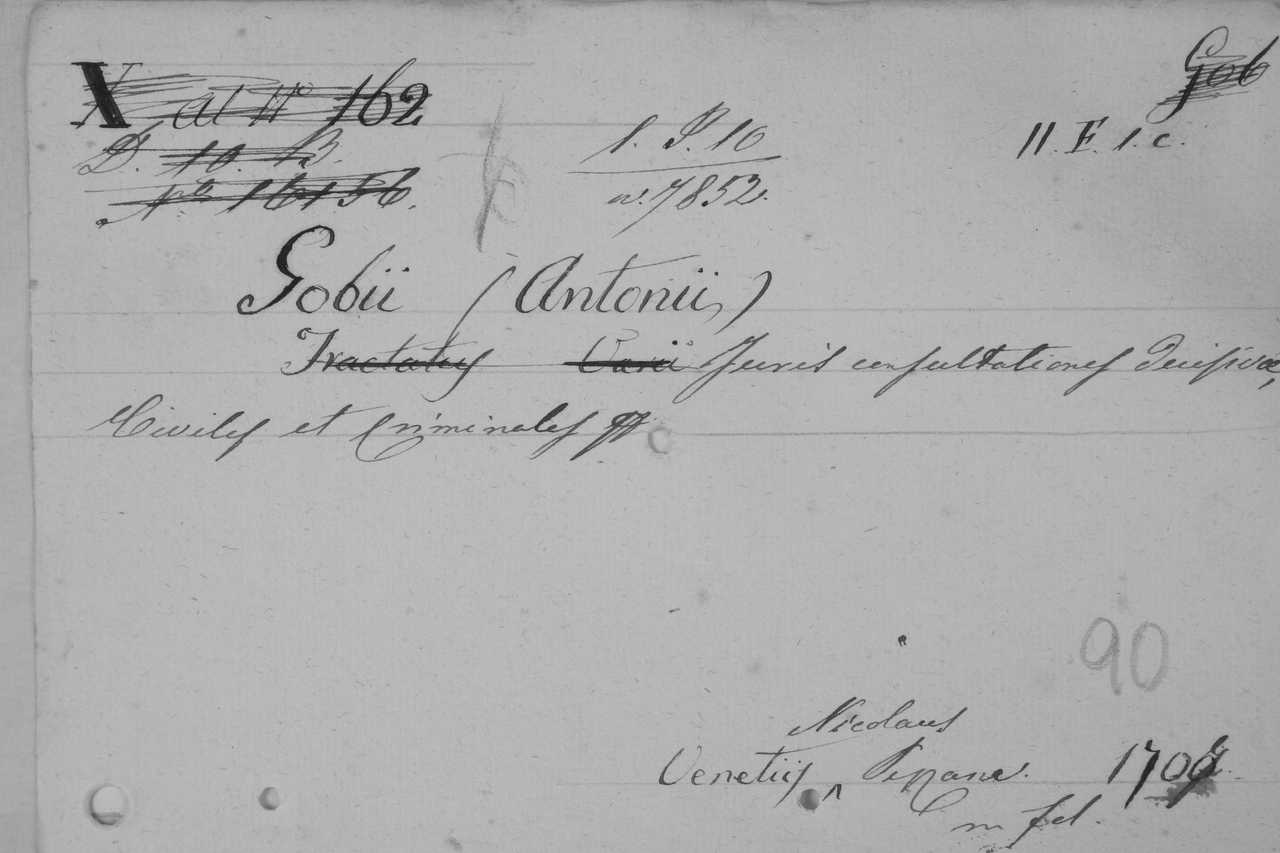 Gob
X al N° 162
D. 10. B.
1. P. 10
11. F. 1. c.
N° 16156.
n. 7852.
Gobii (Antonii)
Tractatus Varii Juris consultationes decisivæ,
Civiles et Criminales
90
Nicolaus
Venetiis ^ Pezzana. 1709
in fol.